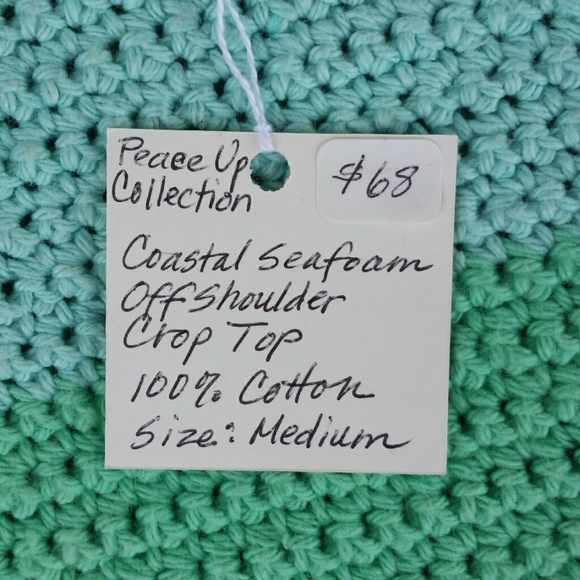 Peace Up
Collection
$68
Coastal Seafoam
Off Shoulder
Crop Top
100% Cotton
Size: Medium